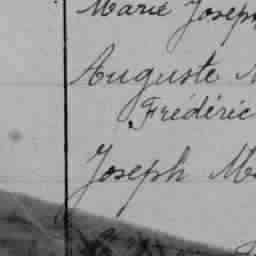 Marie Joseph
Auguste
Frédéric
Joseph